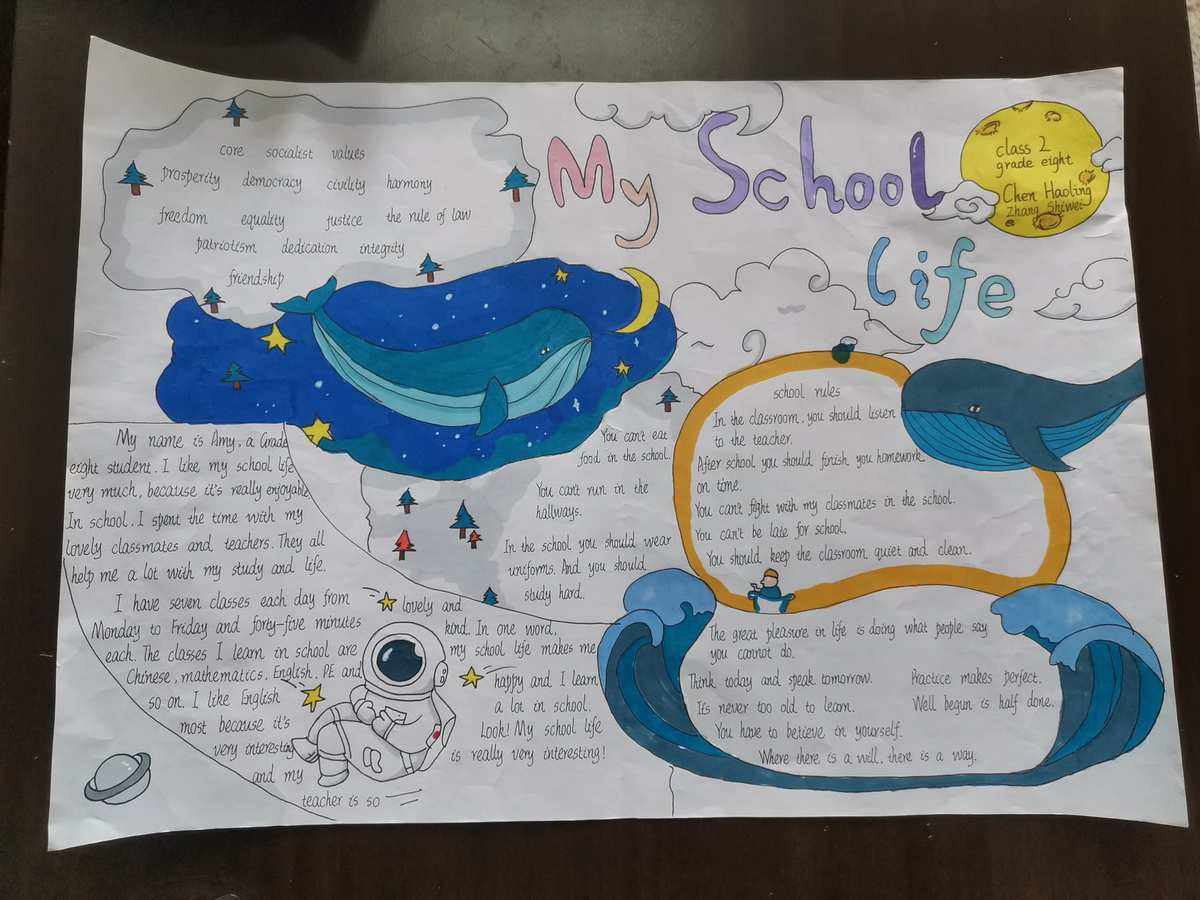 My School
life
class 2
grade eight
Chen Haoling
Zhang Shiwei
core socialist values
prosperity democracy civility harmony
freedom equality justice the rule of law
patriotism dedication integrity
friendship
My name is Amy, a Grade
eight student. I like my school life
very much, because it's really enjoyable.
In school. I spent the time with my
lovely classmates and teachers. They all
help me a lot with my study and life.
I have seven classes each day from
Monday to Friday and forty-five minutes
each. The classes I learn in school are
Chinese, mathematics, English, PE and
so on. I like English
most because it's
very interesting
and my
teacher is so
lovely and
kind. In one word,
my school life makes me
happy and I learn
a lot in school.
Look! My school life
is really very interesting!
You can't eat
food in the school.
You can't run in the
hallways.
In the school you should wear
uniforms. And you should
study hard.
school rules
In the classroom, you should listen
to the teacher.
After school you should finish you homework
on time.
You can't fight with my classmates in the school.
You can't be late for school.
You should keep the classroom quiet and clean.
The great pleasure in life is doing what people say
you cannot do.
Think today and speak tomorrow.
Practice makes perfect.
It's never too old to learn.
Well begun is half done.
You have to believe in yourself.
Where there is a will, there is a way.